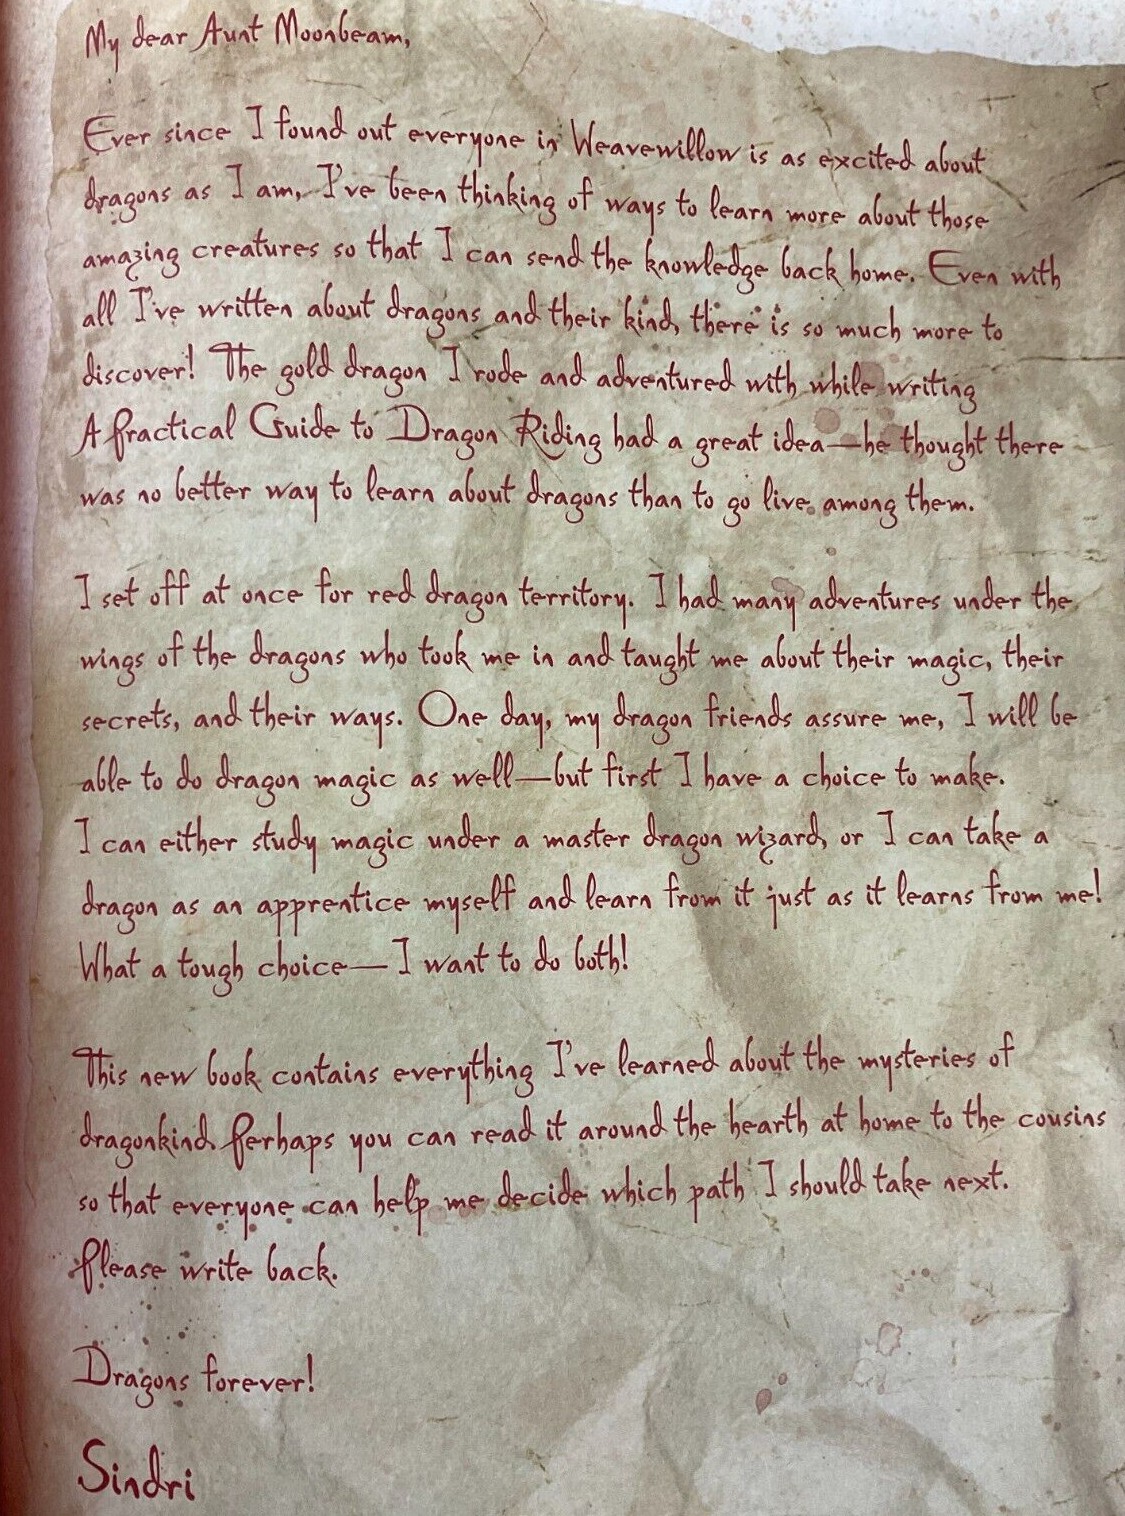 My dear Aunt Moonbeam,
Ever since I found out everyone in Weavewillow is as excited about
dragons as I am, I've been thinking of ways to learn more about those
amazing creatures so that I can send the knowledge back home. Even with
all I've written about dragons and their kind, there is so much more to
discover! The gold dragon I rode and adventured with while writing
A Practical Guide to Dragon Riding had a great idea—he thought there
was no better way to learn about dragons than to go live among them.
I set off at once for red dragon territory. I had many adventures under the
wings of the dragons who took me in and taught me about their magic, their
secrets, and their ways. One day, my dragon friends assure me, I will be
able to do dragon magic as well—but first I have a choice to make.
I can either study magic under a master dragon wizard, or I can take a
dragon as an apprentice myself and learn from it just as it learns from me!
What a tough choice—I want to do both!
This new book contains everything I've learned about the mysteries of
dragonkind. Perhaps you can read it around the hearth at home to the cousins
so that everyone can help me decide which path I should take next.
Please write back.
Dragons forever!
Sindri